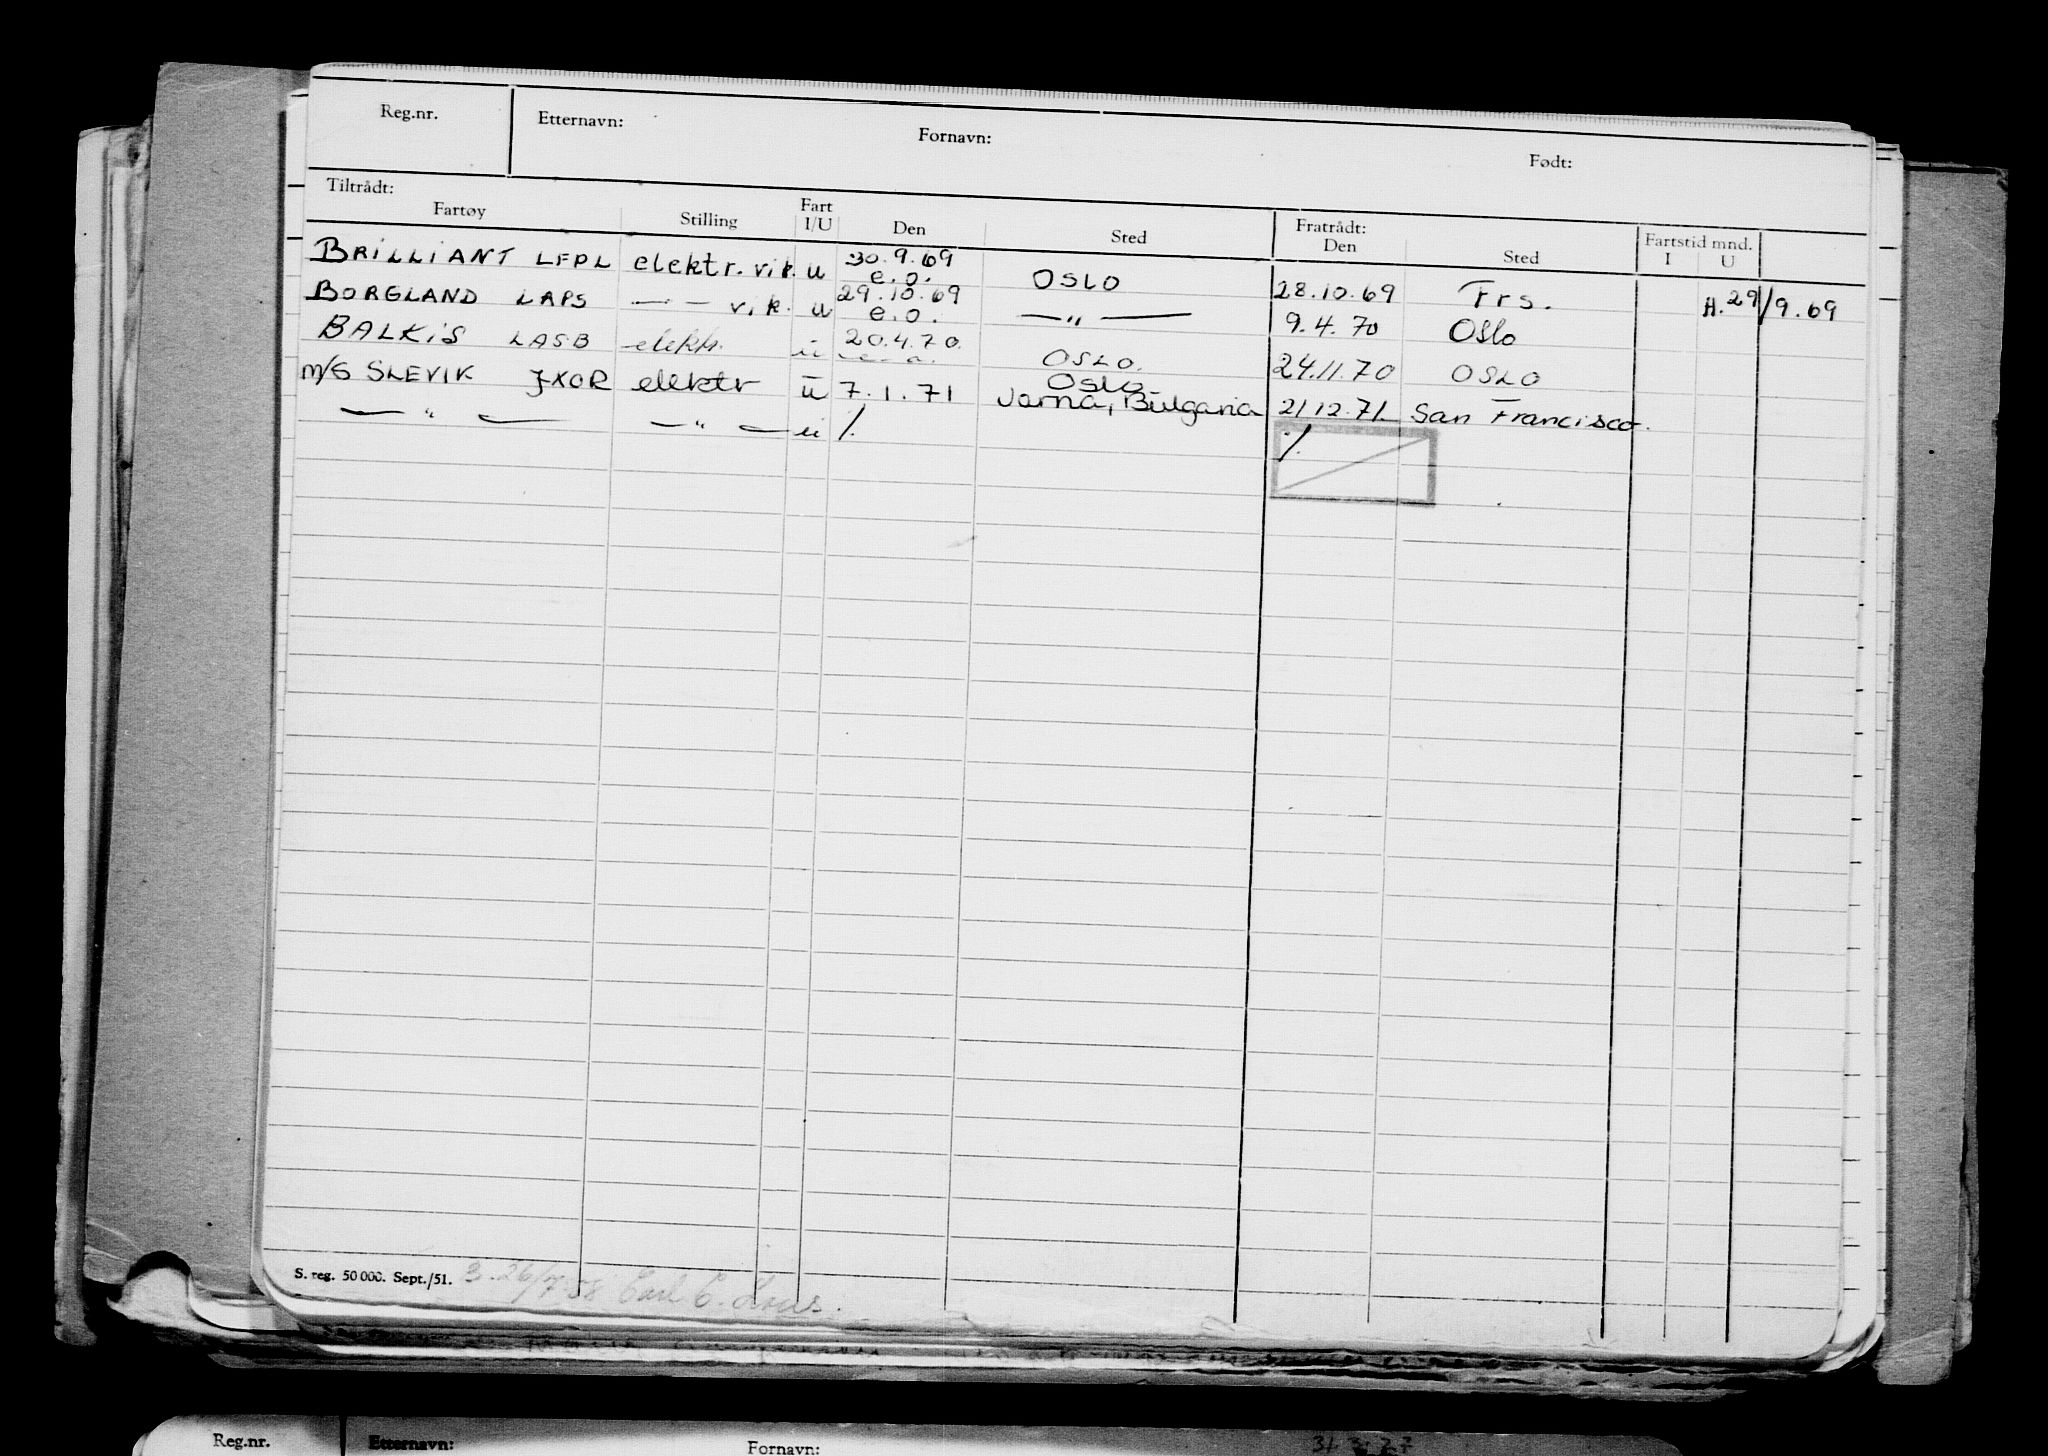 Reg.nr. Etternavn: Fornavn: Født:
Tiltrådt: Fratrådt: Fartstid mnd.
Fartøy Stilling Fart I/U Den Sted Den Sted I U
BRILLIANT LFPL elektr. vik. u 30.9.69 e.o. OSLO 28.10.69 Frs. H.29/9.69
BORGLAND LAPS — — vik. u 29.10.69 e.o. —„— 9.4.70 Oslo
BALKIS LASB elektr. u 20.4.70. OSLO. 24.11.70 OSLO
M/S SLEVIK JXOR elektr u 7.1.71 Oslo Varna, Bulgaria 21.12.71 San Francisco.
—„— —„— u /. /.
S. reg. 50 000. Sept./51. 3. 26/7-58
Reg.nr. Etternavn: Fornavn: